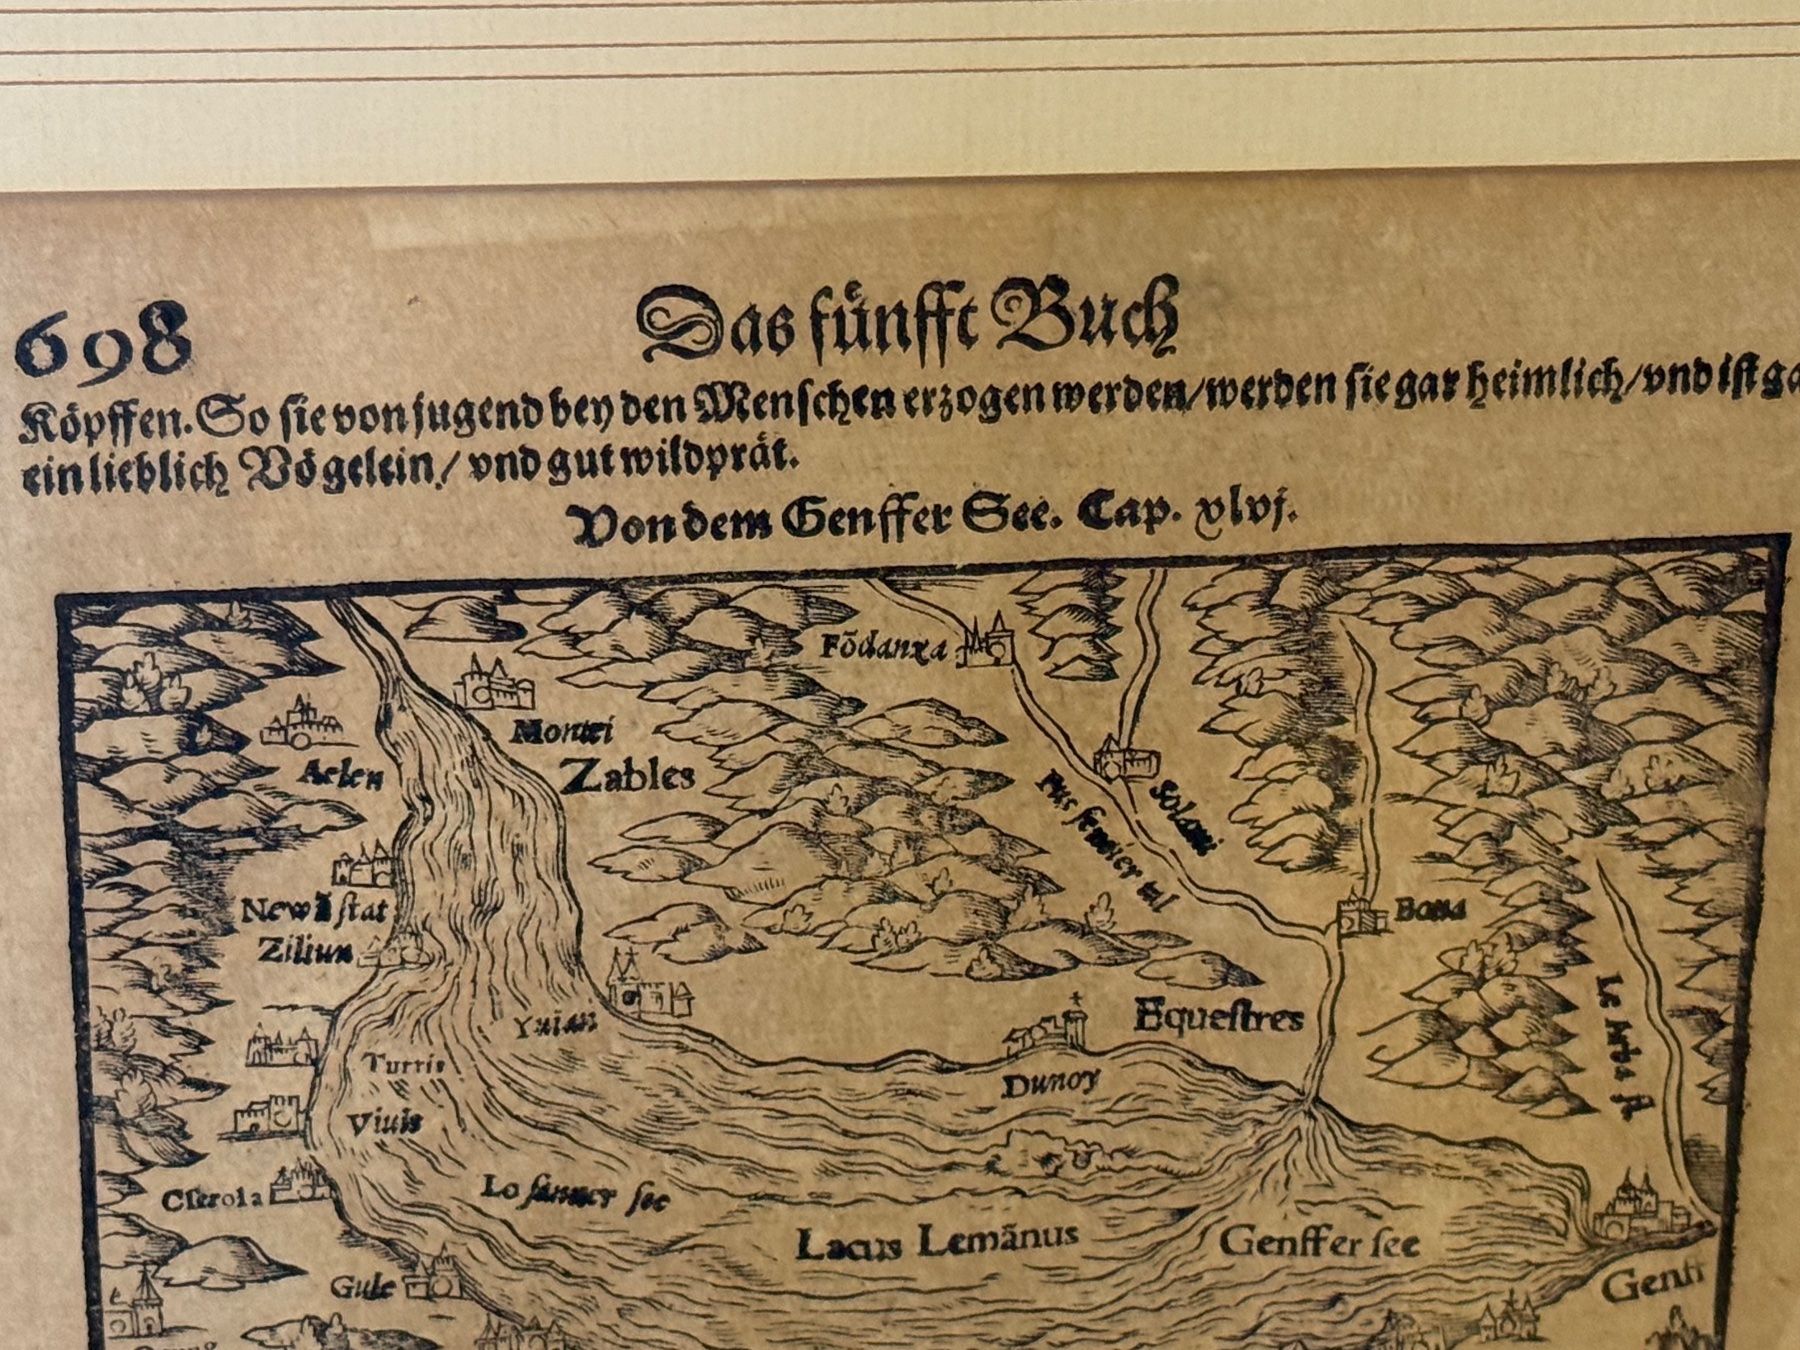 698
Das fünfft Buch
Köpffen. So sie von jugend bey den Menschen erzogen werden/ werden sie gar heimlich/ vnd ist ga
ein lieblich Vögelein/ vnd gut wildprät.
Von dem Genffer See. Cap. xlvj.
Fõdanxa
Aelen
Zables
Solami
tal
Bona
New stat
Ziliun
Equestres
Yuian
Turris
Dunoy
Viuis
Clerola
Lo sanner see
Lacus Lemãnus
Genffer see
Gule
Genff